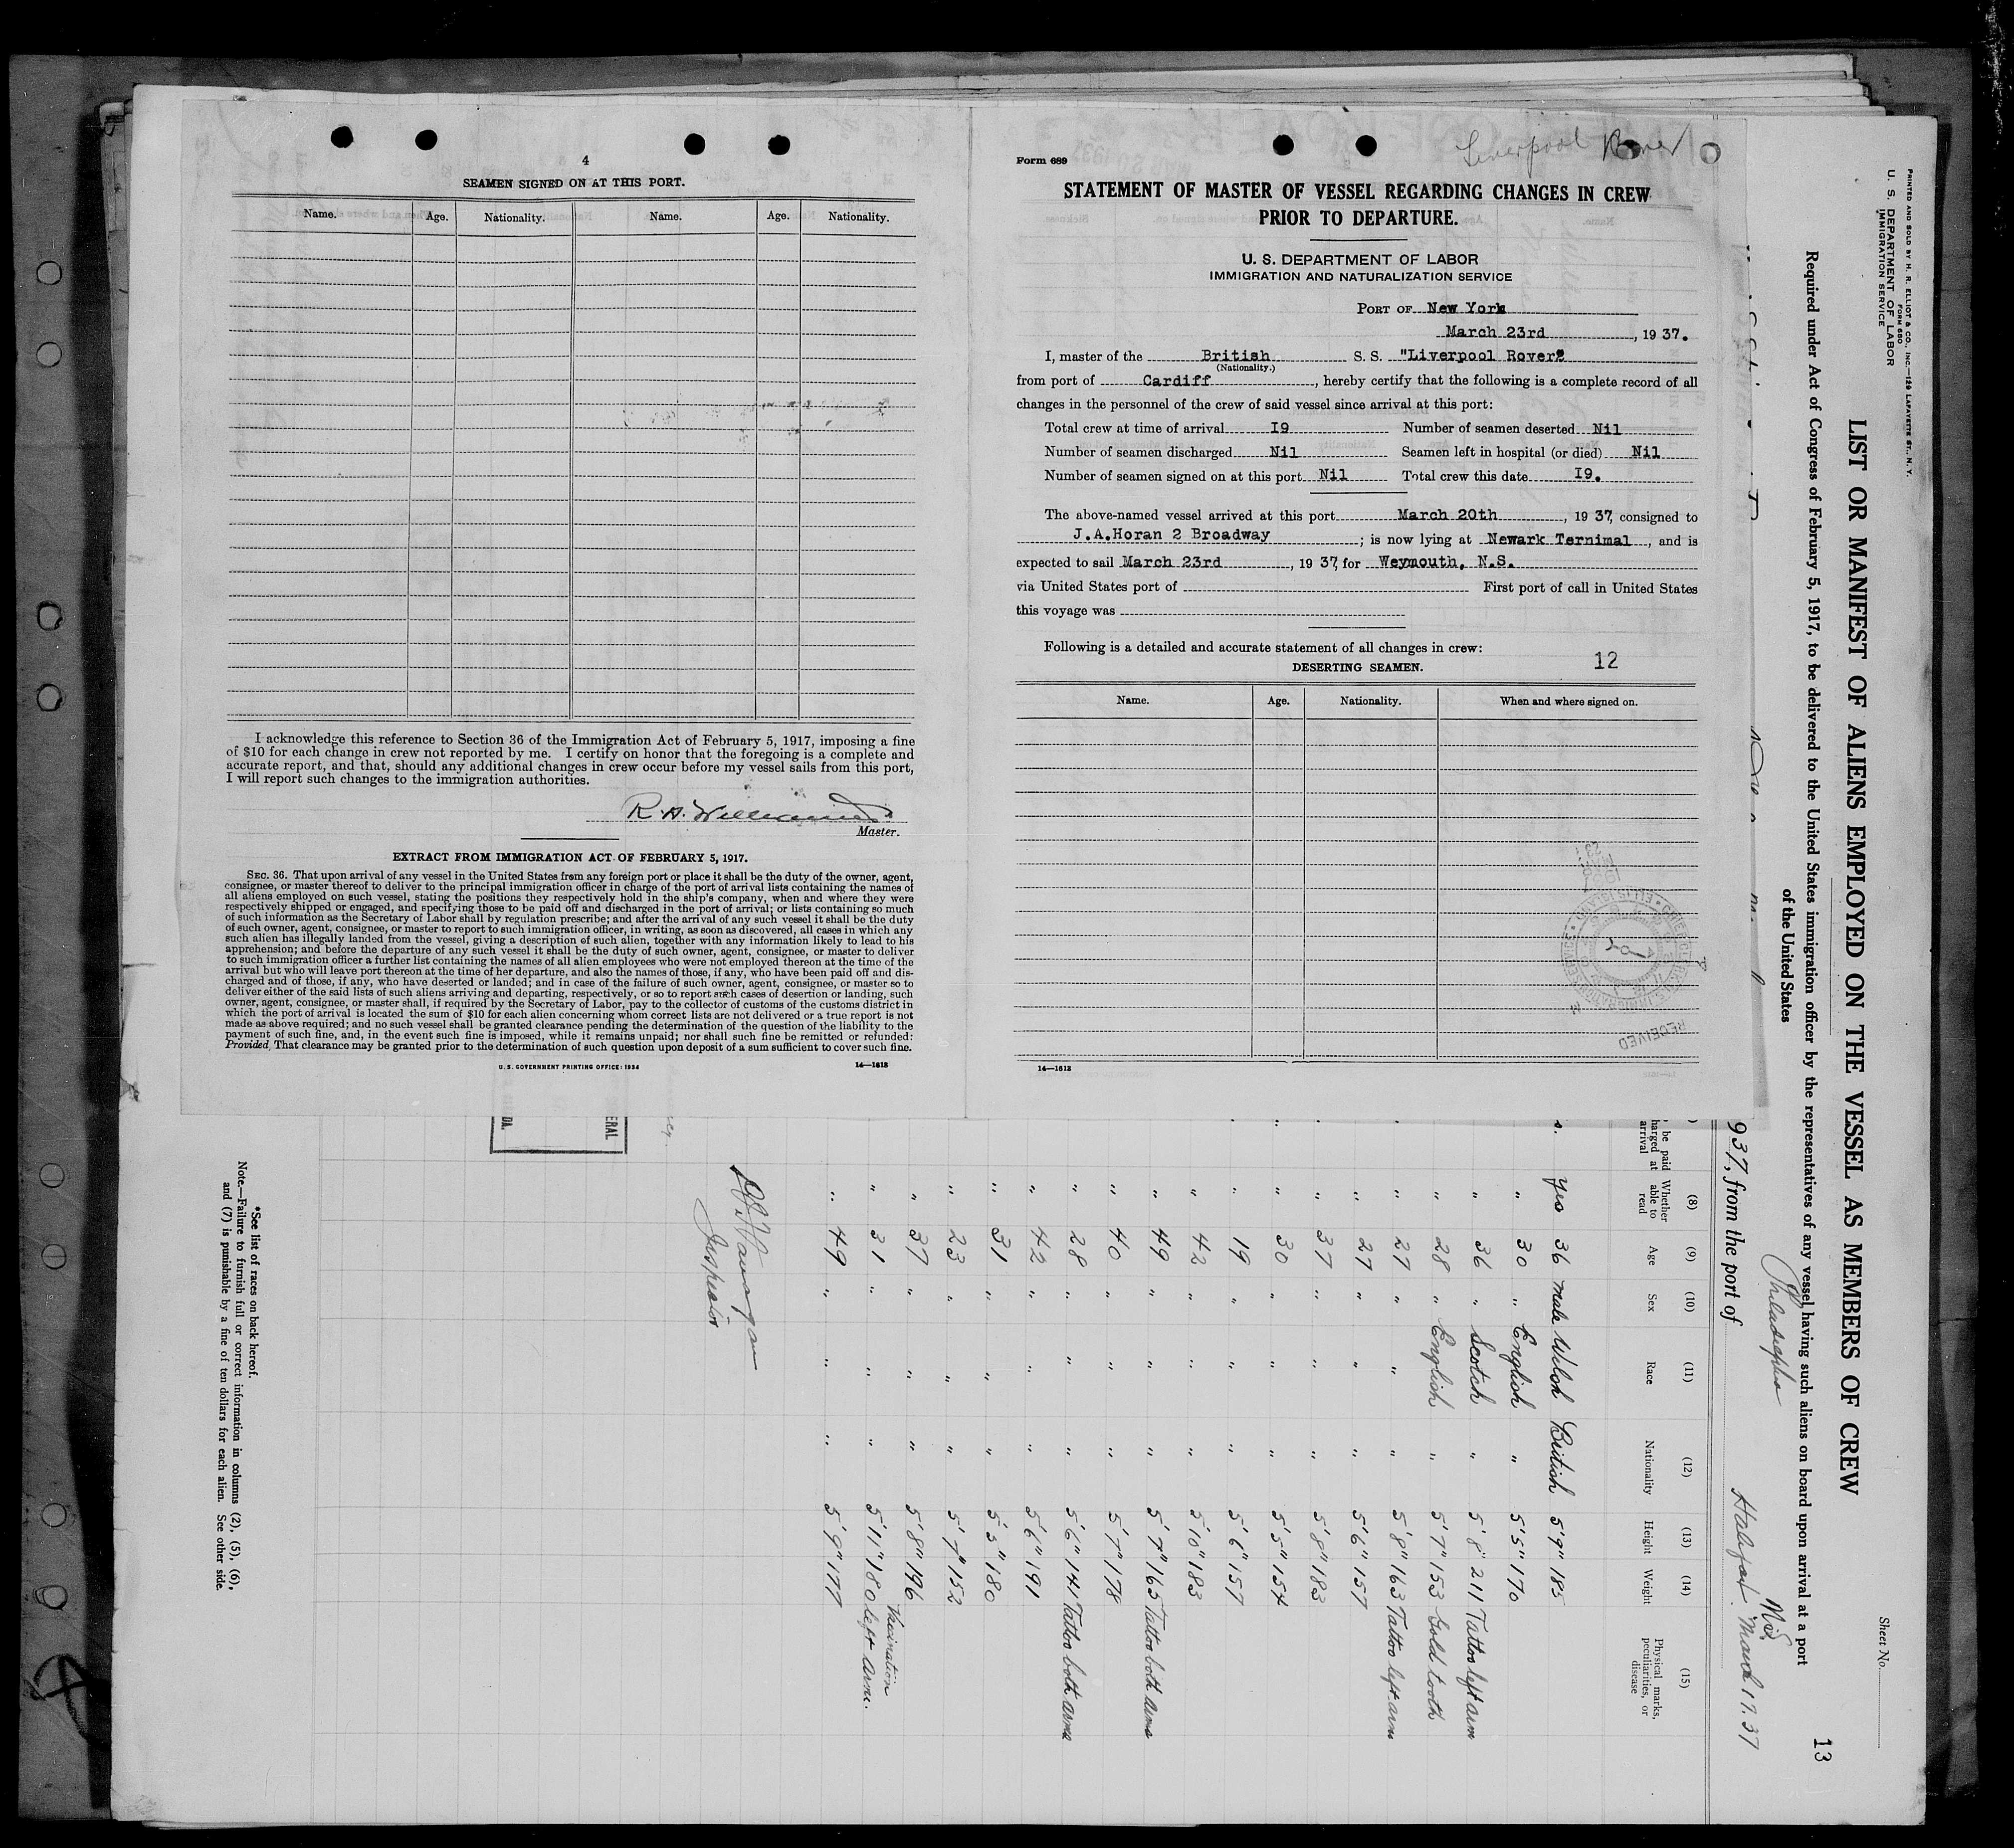 4
SEAMEN SIGNED ON AT THIS PORT.
Name. Age. Nationality. Name. Age. Nationality.
I acknowledge this reference to Section 36 of the Immigration Act of February 5, 1917, imposing a fine
of $10 for each change in crew not reported by me. I certify on honor that the foregoing is a complete and
accurate report, and that, should any additional changes in crew occur before my vessel sails from this port,
I will report such changes to the immigration authorities.
R. H. Williams
Master.
EXTRACT FROM IMMIGRATION ACT OF FEBRUARY 5, 1917.
SEC. 36. That upon arrival of any vessel in the United States from any foreign port or place it shall be the duty of the owner, agent,
consignee, or master thereof to deliver to the principal immigration officer in charge of the port of arrival lists containing the names of
all aliens employed on such vessel, stating the positions they respectively hold in the ship's company, when and where they were
respectively shipped or engaged, and specifying those to be paid off and discharged in the port of arrival; or lists containing so much
of such information as the Secretary of Labor shall by regulation prescribe; and after the arrival of any such vessel it shall be the duty
of such owner, agent, consignee, or master to report to such immigration officer, in writing, as soon as discovered, all cases in which any
such alien has illegally landed from the vessel, giving a description of such alien, together with any information likely to lead to his
apprehension; and before the departure of any such vessel it shall be the duty of such owner, agent, consignee, or master to deliver
to such immigration officer a further list containing the names of all alien employees who were not employed thereon at the time of the
arrival but who will leave port thereon at the time of her departure, and also the names of those, if any, who have been paid off and dis-
charged and of those, if any, who have deserted or landed; and in case of the failure of such owner, agent, consignee, or master so to
deliver either of the said lists of such aliens arriving and departing, respectively, or so to report such cases of desertion or landing, such
owner, agent, consignee, or master shall, if required by the Secretary of Labor, pay to the collector of customs of the customs district in
which the port of arrival is located the sum of $10 for each alien concerning whom correct lists are not delivered or a true report is not
made as above required; and no such vessel shall be granted clearance pending the determination of the question of the liability to the
payment of such fine, and, in the event such fine is imposed, while it remains unpaid; nor shall such fine be remitted or refunded:
Provided, That clearance may be granted prior to the determination of such question upon deposit of a sum sufficient to cover such fine.
U. S. GOVERNMENT PRINTING OFFICE: 1934 14—1613
Liverpool Rover
Form 689
STATEMENT OF MASTER OF VESSEL REGARDING CHANGES IN CREW
PRIOR TO DEPARTURE.
U. S. DEPARTMENT OF LABOR
IMMIGRATION AND NATURALIZATION SERVICE
PORT OF New York
March 23rd, 1937.
I, master of the British S. S. "Liverpool Rover"
(Nationality.)
from port of Cardiff, hereby certify that the following is a complete record of all
changes in the personnel of the crew of said vessel since arrival at this port:
Total crew at time of arrival I9 Number of seamen deserted Nil
Number of seamen discharged Nil Seamen left in hospital (or died) Nil
Number of seamen signed on at this port Nil Total crew this date I9.
The above-named vessel arrived at this port March 20th, 1937, consigned to
J.A.Horan 2 Broadway; is now lying at Newark Ternimal, and is
expected to sail March 23rd, 1937, for Weymouth, N.S.
via United States port of First port of call in United States
this voyage was
Following is a detailed and accurate statement of all changes in crew:
12
DESERTING SEAMEN.
Name. Age. Nationality. When and where signed on.
RECEIVED
14—1613
PRINTED AND SOLD BY H. R. ELLIOT & CO., INC.—129 LAFAYETTE ST., N. Y.
FORM 680
U. S. DEPARTMENT OF LABOR
IMMIGRATION SERVICE
Sheet No.
LIST OR MANIFEST OF ALIENS EMPLOYED ON THE VESSEL AS MEMBERS OF CREW
13
Required under Act of Congress of February 5, 1917, to be delivered to the United States immigration officer by the representatives of any vessel having such aliens on board upon arrival at a port
of the United States
Philadelphia
937, from the port of Halifax March 17. 37
(8) (9) (10) (11) (12) (13) (14) (15)
be paid
harged at
arrival
Whether able to read Age Sex Race Nationality Height Weight Physical marks, peculiarities, or disease
yes 36 male Welsh British 5'9" 185
" 30 " English " 5'5" 170
" 36 " Scotch " 5'8" 211 Tattoo left arm
" 28 " English " 5'7" 153 Gold tooth
" 27 " " " 5'8" 163 Tattoo left arm
" 27 " " " 5'6" 157
" 37 " " " 5'8" 183
" 30 " " " 5'5" 154
" 19 " " " 5'6" 157
" 42 " " " 5'10" 183
" 49 " " " 5'7" 163 Tattoo both arms
" 40 " " " 5'7" 178
" 28 " " " 5'6" 141 Tattoo both arms
" 42 " " " 5'6" 191
" 31 " " " 5'5" 180
" 23 " " " 5'7" 152
" 37 " " " 5'8" 196
" 31 " " " 5'11" 180 Vaccination left arm.
" 49 " " " 5'9" 177
Inspector
ERAL
DA.
*See list of races on back hereof.
Note.—Failure to furnish full or correct information in columns (2), (5), (6),
and (7) is punishable by a fine of ten dollars for each alien. See other side.